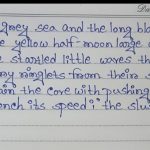 Da
grey sea and the long bla
e yellow half-moon large
e startled little waves th
ry ringlets from their s
ain the cove with pushing
nch its speed i' the slu